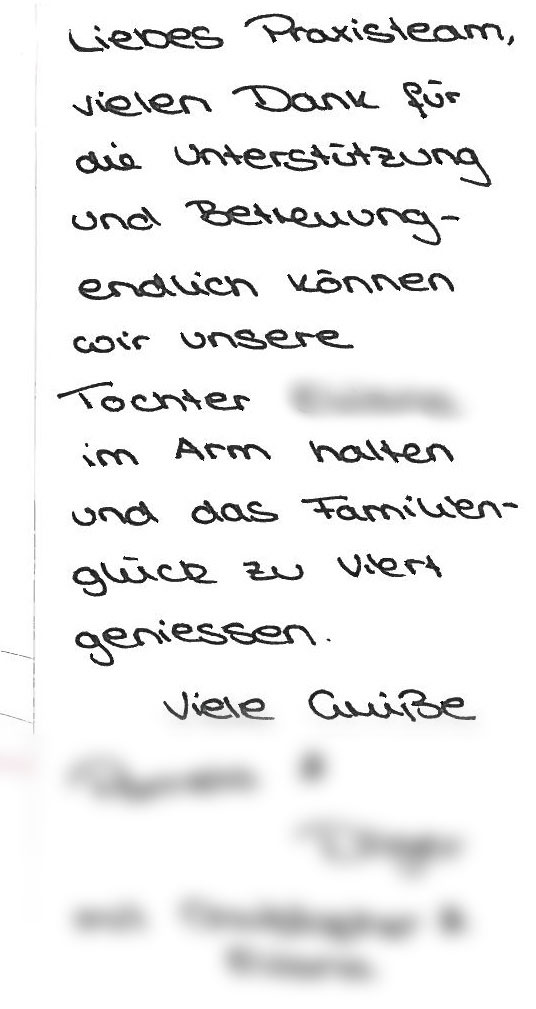 Liebes Praxisteam,
vielen Dank für
die Unterstützung
und Betreuung-
endlich können
wir unsere
Tochter
im Arm halten
und das Familien-
glück zu viert
geniessen.
Viele Grüße